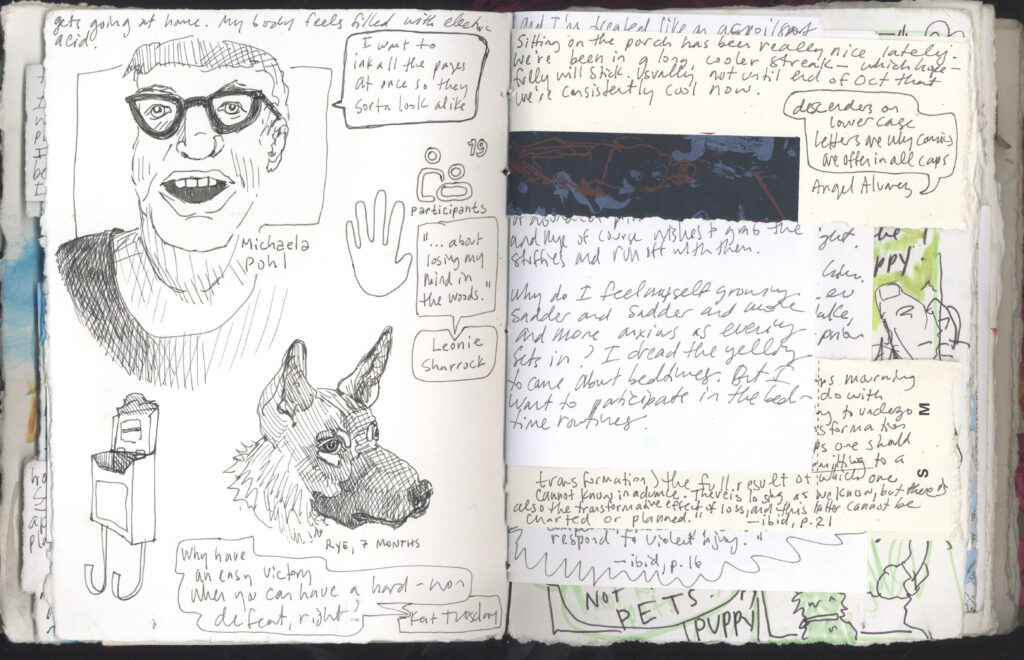 gets going at home. My body feels filled with electric
acid.
I want to
ink all the pages
at once so they
sorta look alike
19
participants
Michaela
Pohl
"... about
losing my
mind in
the woods."
Leonie
Sharrock
RYE, 7 MONTHS
Why have
an easy victory
when you can have a hard-won
defeat, right?
Kat Tuesday
and I'm treated like an
Sitting on the porch has been really nice lately.
We've been in a long, cooler streak – which hope-
fully will stick. Usually not until end of Oct that
we're consistently cool now.
descenders on
lower case
letters are why comics
are often in all caps
Angel Alvarez
and Rye of course wishes to grab the
stiffies and run off with them.
Why do I feel myself growing
sadder and sadder and more
and more anxious as evening
sets in? I dread the yelling
to come about bedtimes. But I
want to participate in the bed-
time routines.
ght.
the
ppy!
ake,
mourning
do with
to undergo
sformation
one should
to a
M
S
transformation) the full result of which one
cannot know in advance. There is losing, as we know, but there is
also the transformative effect of loss, and this latter cannot be
charted or planned." —ibid, p. 21
respond to violent injury."
—ibid, p. 16
NOT
PETS.
PUPPY